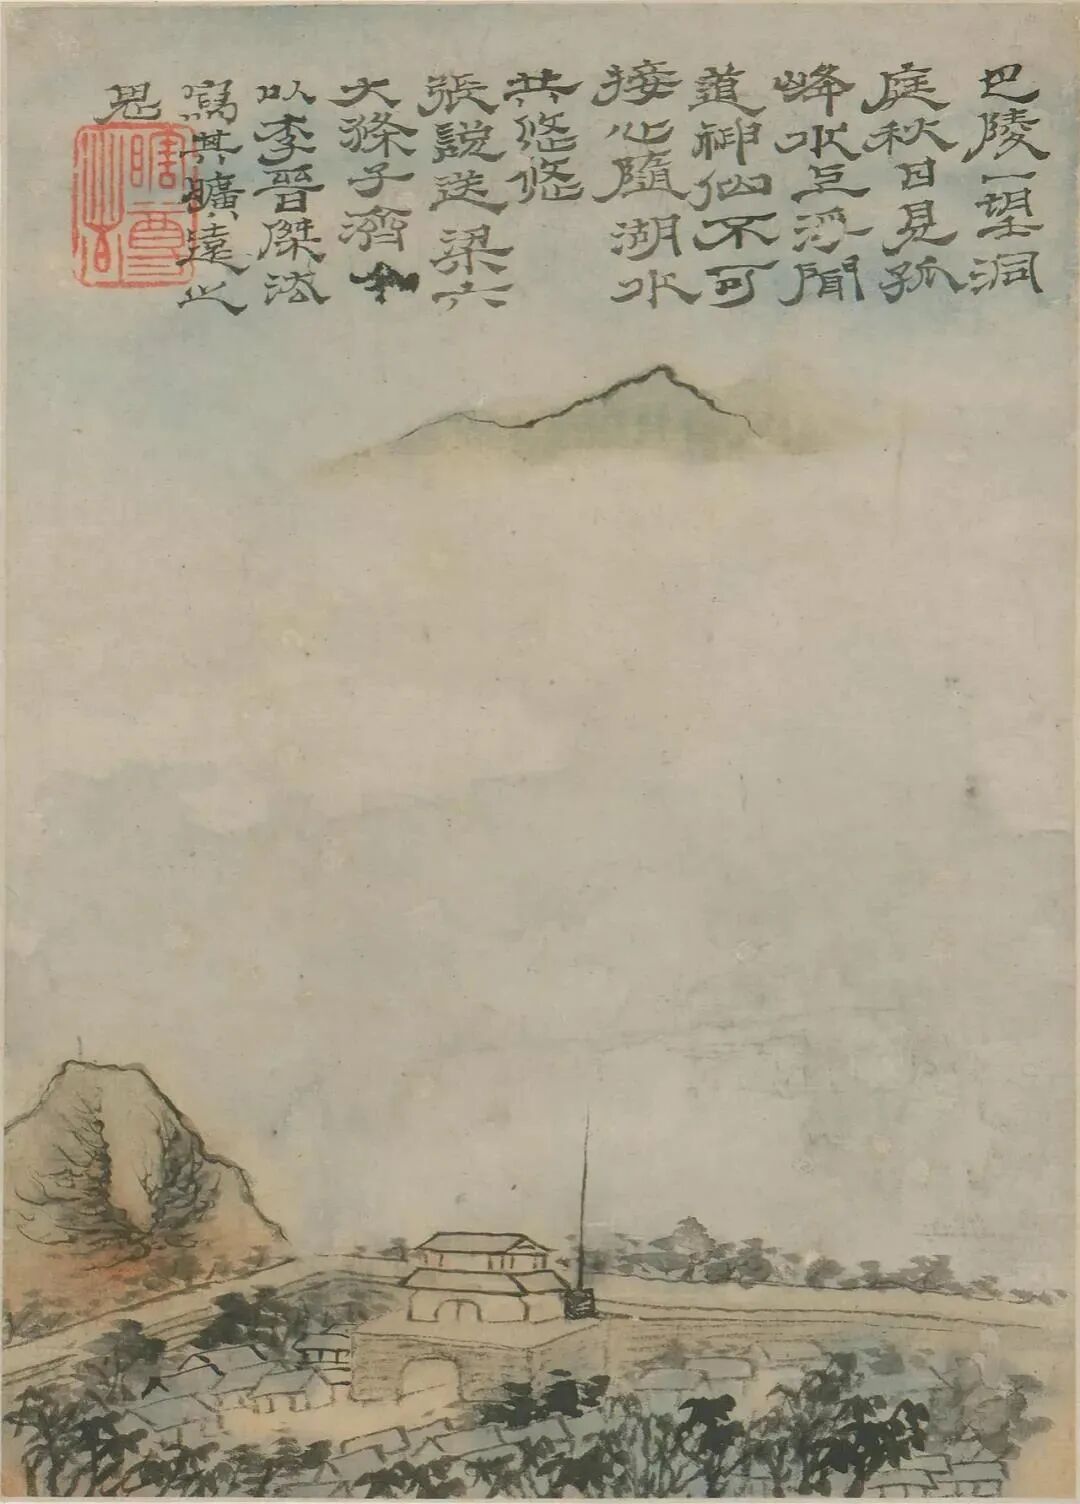 巴陵一望洞
庭秋日見孤
峰水亘浮聞
道神仙不可
接心隨湖水
共悠悠
張説送梁六
大滌子濟
以李晉傑法
寫其曠遠之
思
瞎尊者